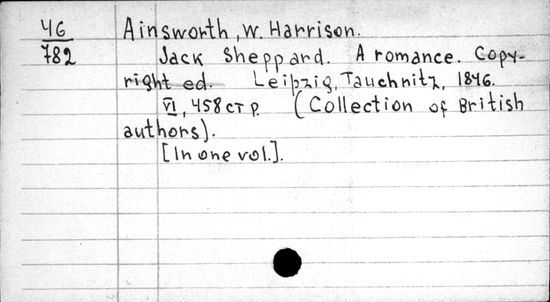 46
782
Ainsworth, W. Harrison.
Jack Sheppard. A romance. Copy-
right ed. Leipzig, Tauchnitz, 1846.
VI, 458 стр. (Collection of British
authors).
[In one vol.].